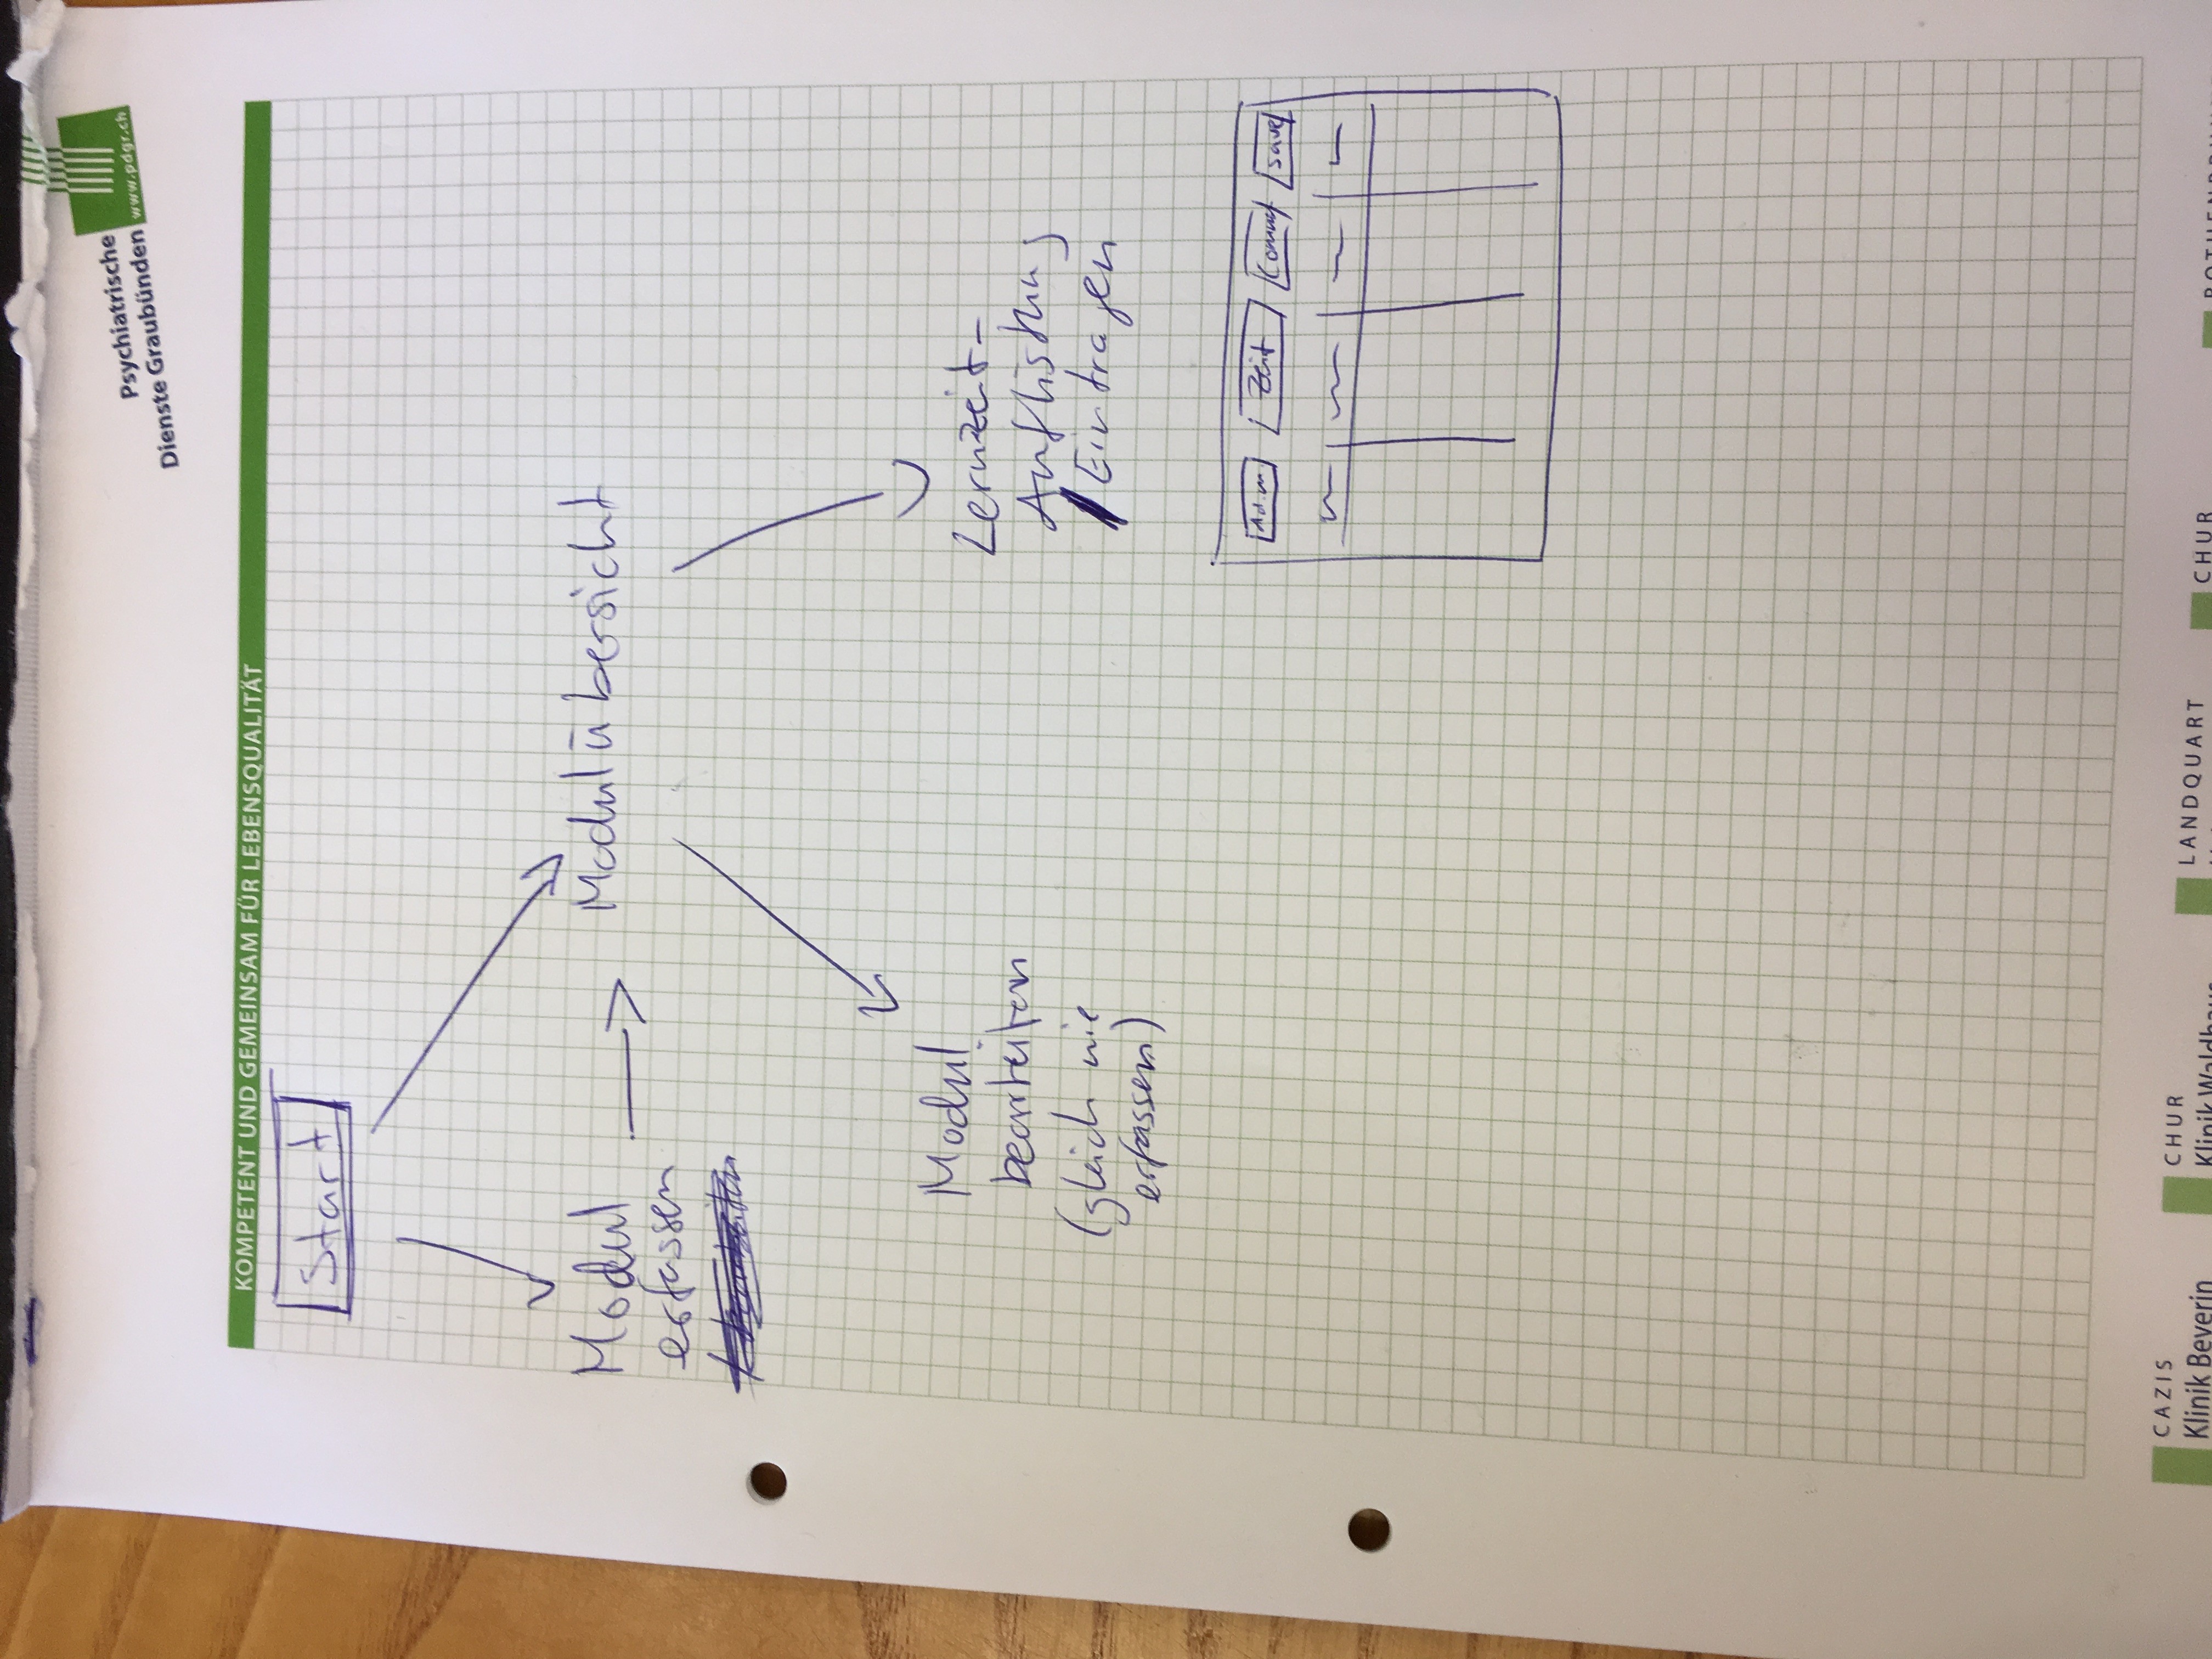 Psychiatrische
Dienste Graubünden
www.pdgr.ch
KOMPETENT UND GEMEINSAM FÜR LEBENSQUALITÄT
Start
Modul
erfassen
Modulübersicht
Modul
bearbeiten
(gleich wie
erfassen)
Lernzeit-
Auflistung
/Eintragen
Zeit
save
CAZIS
Klinik Beverin
CHUR
Klinik Waldhaus
LANDQUART
CHUR